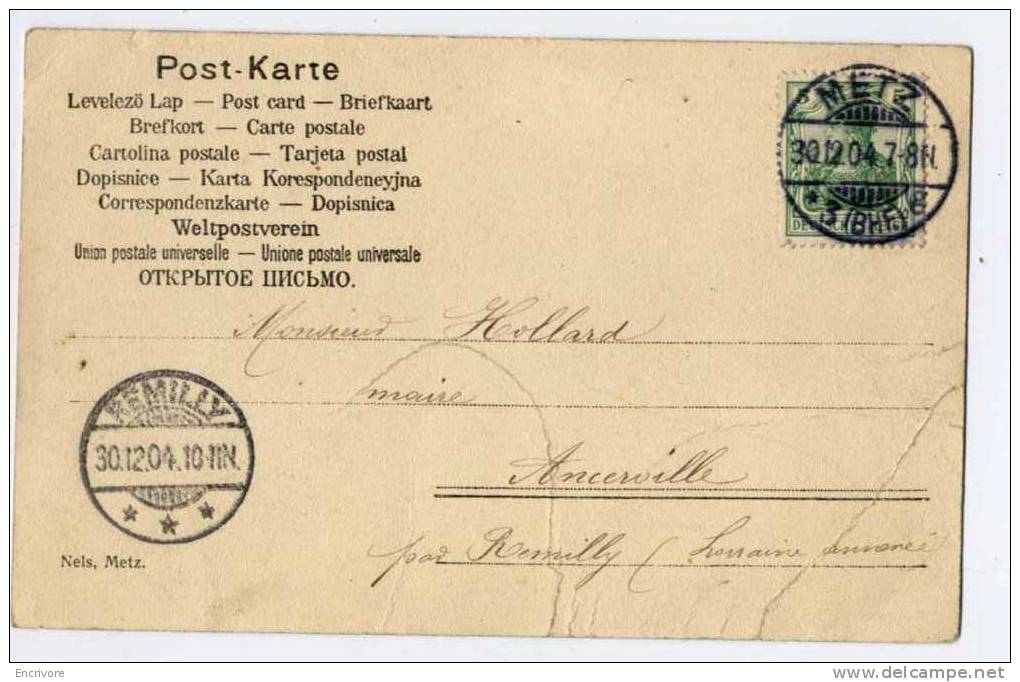 Post-Karte
Levelezö Lap — Post card — Briefkaart
Brefkort — Carte postale
Cartolina postale — Tarjeta postal
Dopisnice — Karta Korespondeneyjna
Correspondenzkarte — Dopisnica
Weltpostverein
Union postale universelle — Unione postale universale
ОТКРЫТОЕ ПИСЬМО.
METZ
30.12.04.7-8N.
* 3 (BHF)
Monsieur Hollard
maire
REMILLY
30.12.04.10-11N.
Ancerville
par Remilly (Lorraine annexée
Nels, Metz.
Encrivore
delcampe.net